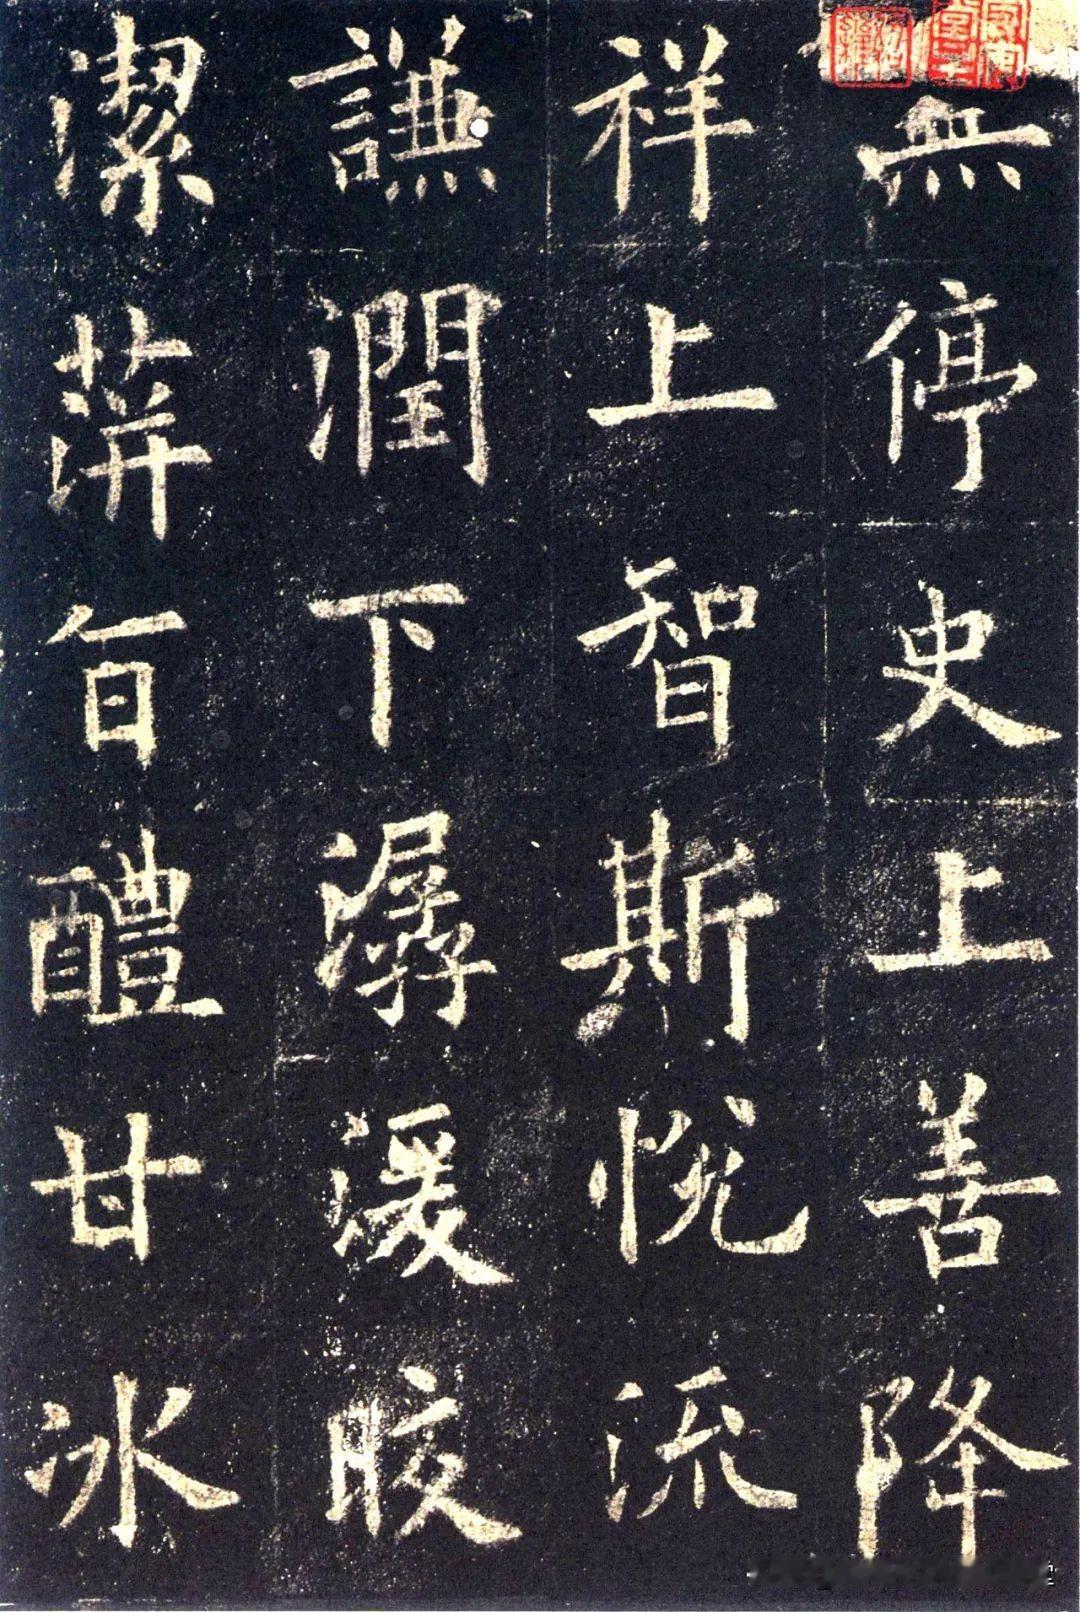 無停史上善降
祥上智斯悅流
謙潤下潺湲皎
潔蓱旨醴甘冰